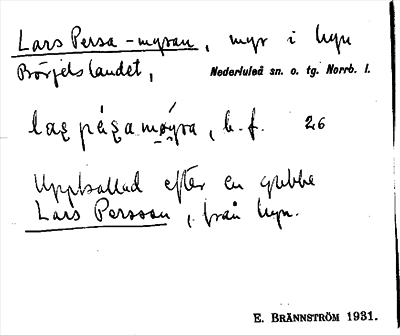 Lars Persa-myran, myr i byn
Börjelslandet, Nederluleå sn. o. tg. Norrb. l.
b. f. 26
Uppkallad efter en gubbe
Lars Persson, från byn.
E. BRÄNNSTRÖM 1931.